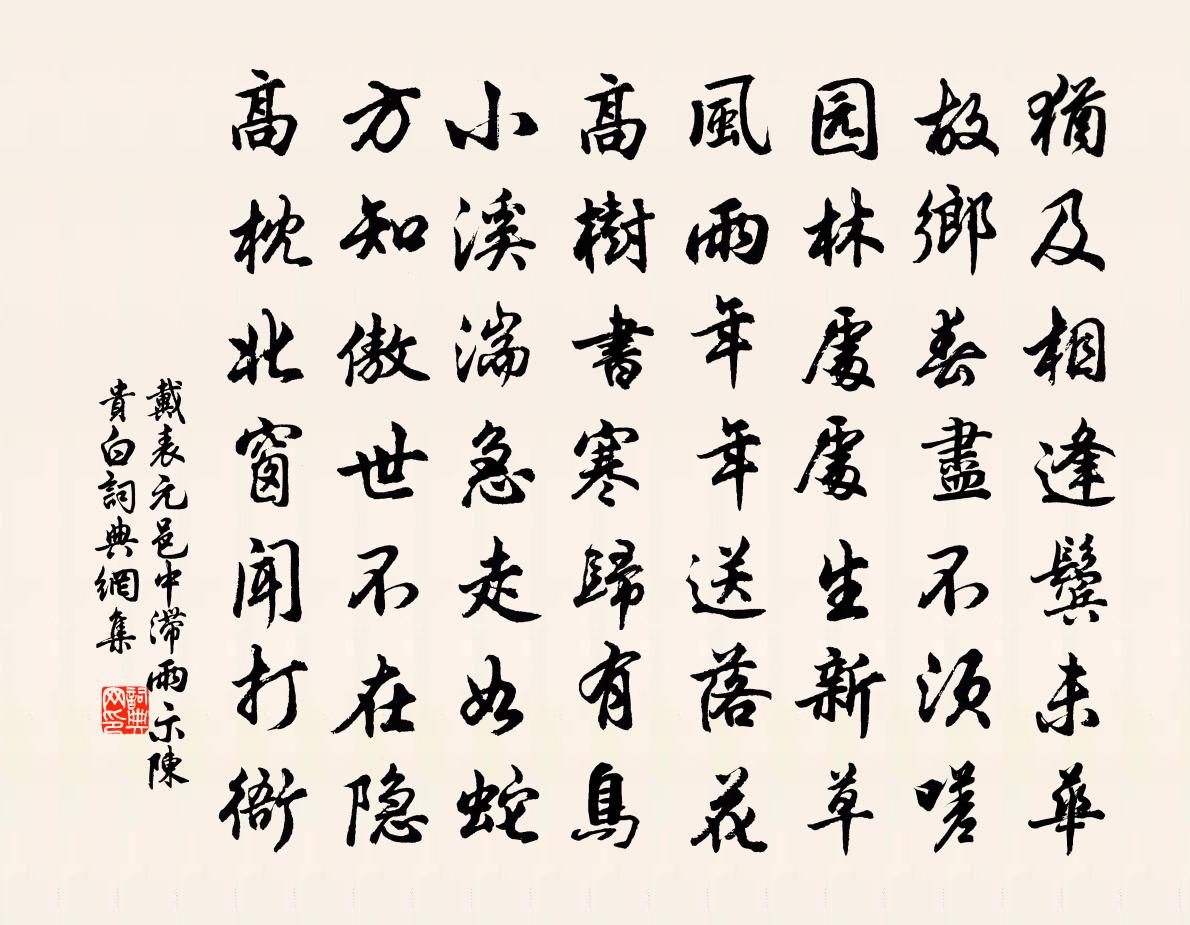 猶及相逢鬢未華
故鄉春盡不須嗟
园林處處生新草
風雨年年送落花
高樹書寒歸有鳥
小溪湍急走如蛇
方知傲世不在隐
高枕北窗聞打衙
戴表元邑中滯雨示陳
貴白詞典網集
詞典网印